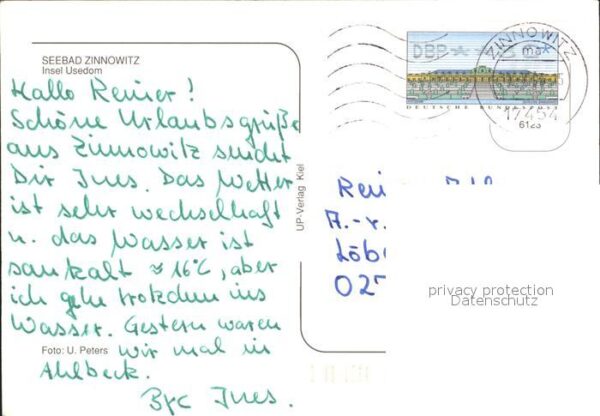 SEEBAD ZINNOWITZ
Insel Usedom
Hallo Reiner!
Schöne Urlaubsgrüße
aus Zinnowitz sendet
Dir Ines. Das Wetter
ist sehr wechselhaft
u. das Wasser ist
saukalt ≈ 16°C, aber
ich gehe trotzdem ins
Wasser. Gestern waren
wir mal in
Ahlbeck.
Ines.
Foto: U. Peters
UP-Verlag Kiel
DBP
DEUTSCHE BUNDESPOST
ZINNOWITZ
mg
17454
6123
A.-v.
Löb
privacy protection
Datenschutz